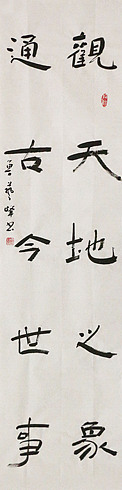 觀天地之象
通古今世事